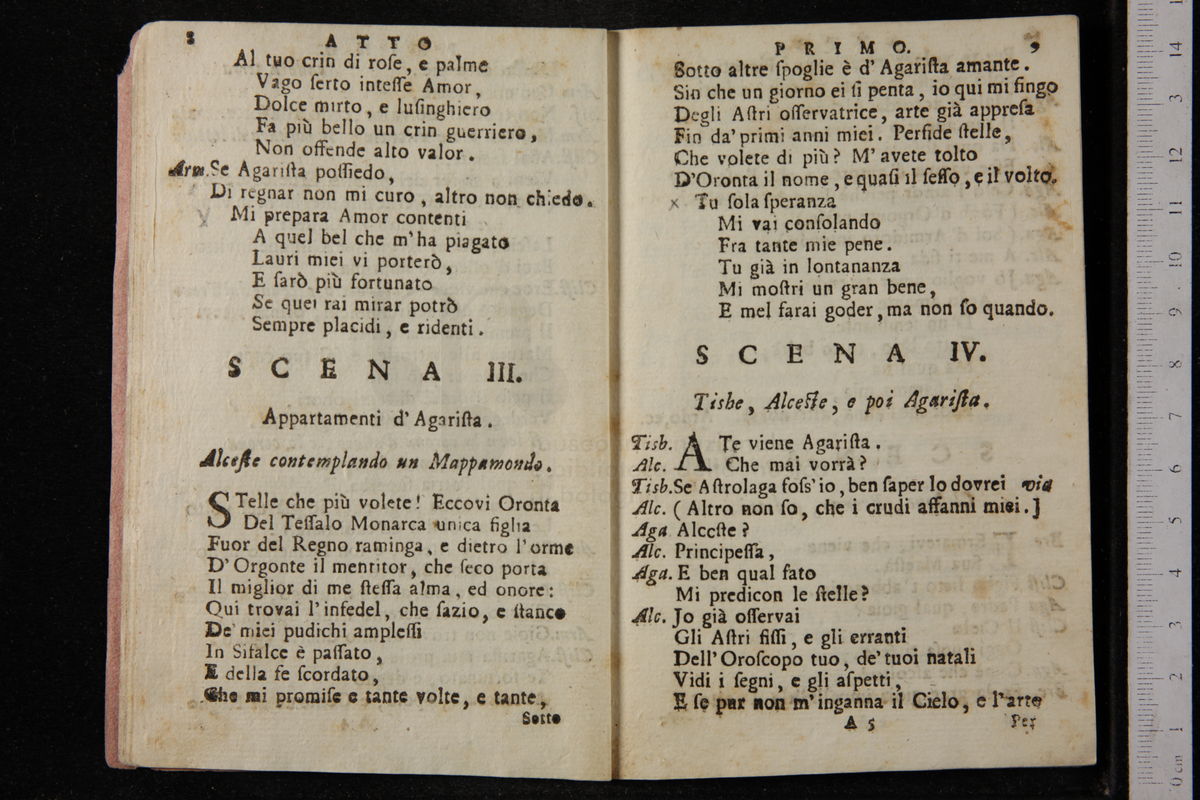 8 ATTO
Al tuo crin di roſe, e palme
Vago ſerto inteſſe Amor,
Dolce mirto, e luſinghiero
Fa più bello un crin guerriero,
Non offende alto valor.
Arm. Se Agariſta poſſiedo,
Di regnar non mi curo, altro non chiedo.
Mi prepara Amor contenti
A quel bel che m'ha piagato
Lauri miei vi porterò,
E ſarò più fortunato
Se quei rai mirar potrò
Sempre placidi, e ridenti.
SCENA III.
Appartamenti d'Agariſta.
Alceſte contemplando un Mappamondo.
STelle che più volete! Eccovi Oronta
Del Teſſalo Monarca unica figlia
Fuor del Regno raminga, e dietro l'orme
D'Orgonte il mentitor, che ſeco porta
Il miglior di me ſteſſa alma, ed onore:
Qui trovai l'infedel, che ſazio, e ſtanco
De' miei pudichi ampleſſi
In Sifalce è paſſato,
E della fe ſcordato,
Che mi promiſe e tante volte, e tante,
Sotto
PRIMO. 9
Sotto altre ſpoglie è d'Agariſta amante.
Sin che un giorno ei ſi penta, io qui mi fingo
Degli Aſtri oſſervatrice, arte già appreſa
Fin da' primi anni miei. Perfide ſtelle,
Che volete di più? M'avete tolto
D'Oronta il nome, e quaſi il ſeſſo, e il volto.
x Tu ſola ſperanza
Mi vai conſolando
Fra tante mie pene.
Tu già in lontananza
Mi moſtri un gran bene,
E mel farai goder, ma non ſo quando.
SCENA IV.
Tisbe, Alceſte, e poi Agariſta.
Tisb. A Te viene Agariſta.
Alc. Che mai vorrà?
Tisb. Se Aſtrolaga foſs'io, ben ſaper lo dovrei via
Alc. (Altro non ſo, che i crudi affanni miei.]
Aga Alceſte?
Alc. Principeſſa,
Aga. E ben qual fato
Mi predicon le ſtelle?
Alc. Jo già oſſervai
Gli Aſtri fiſſi, e gli erranti
Dell'Oroſcopo tuo, de' tuoi natali
Vidi i ſegni, e gli aſpetti,
E ſe pur non m'inganna il Cielo, e l'arte
A 5 Per